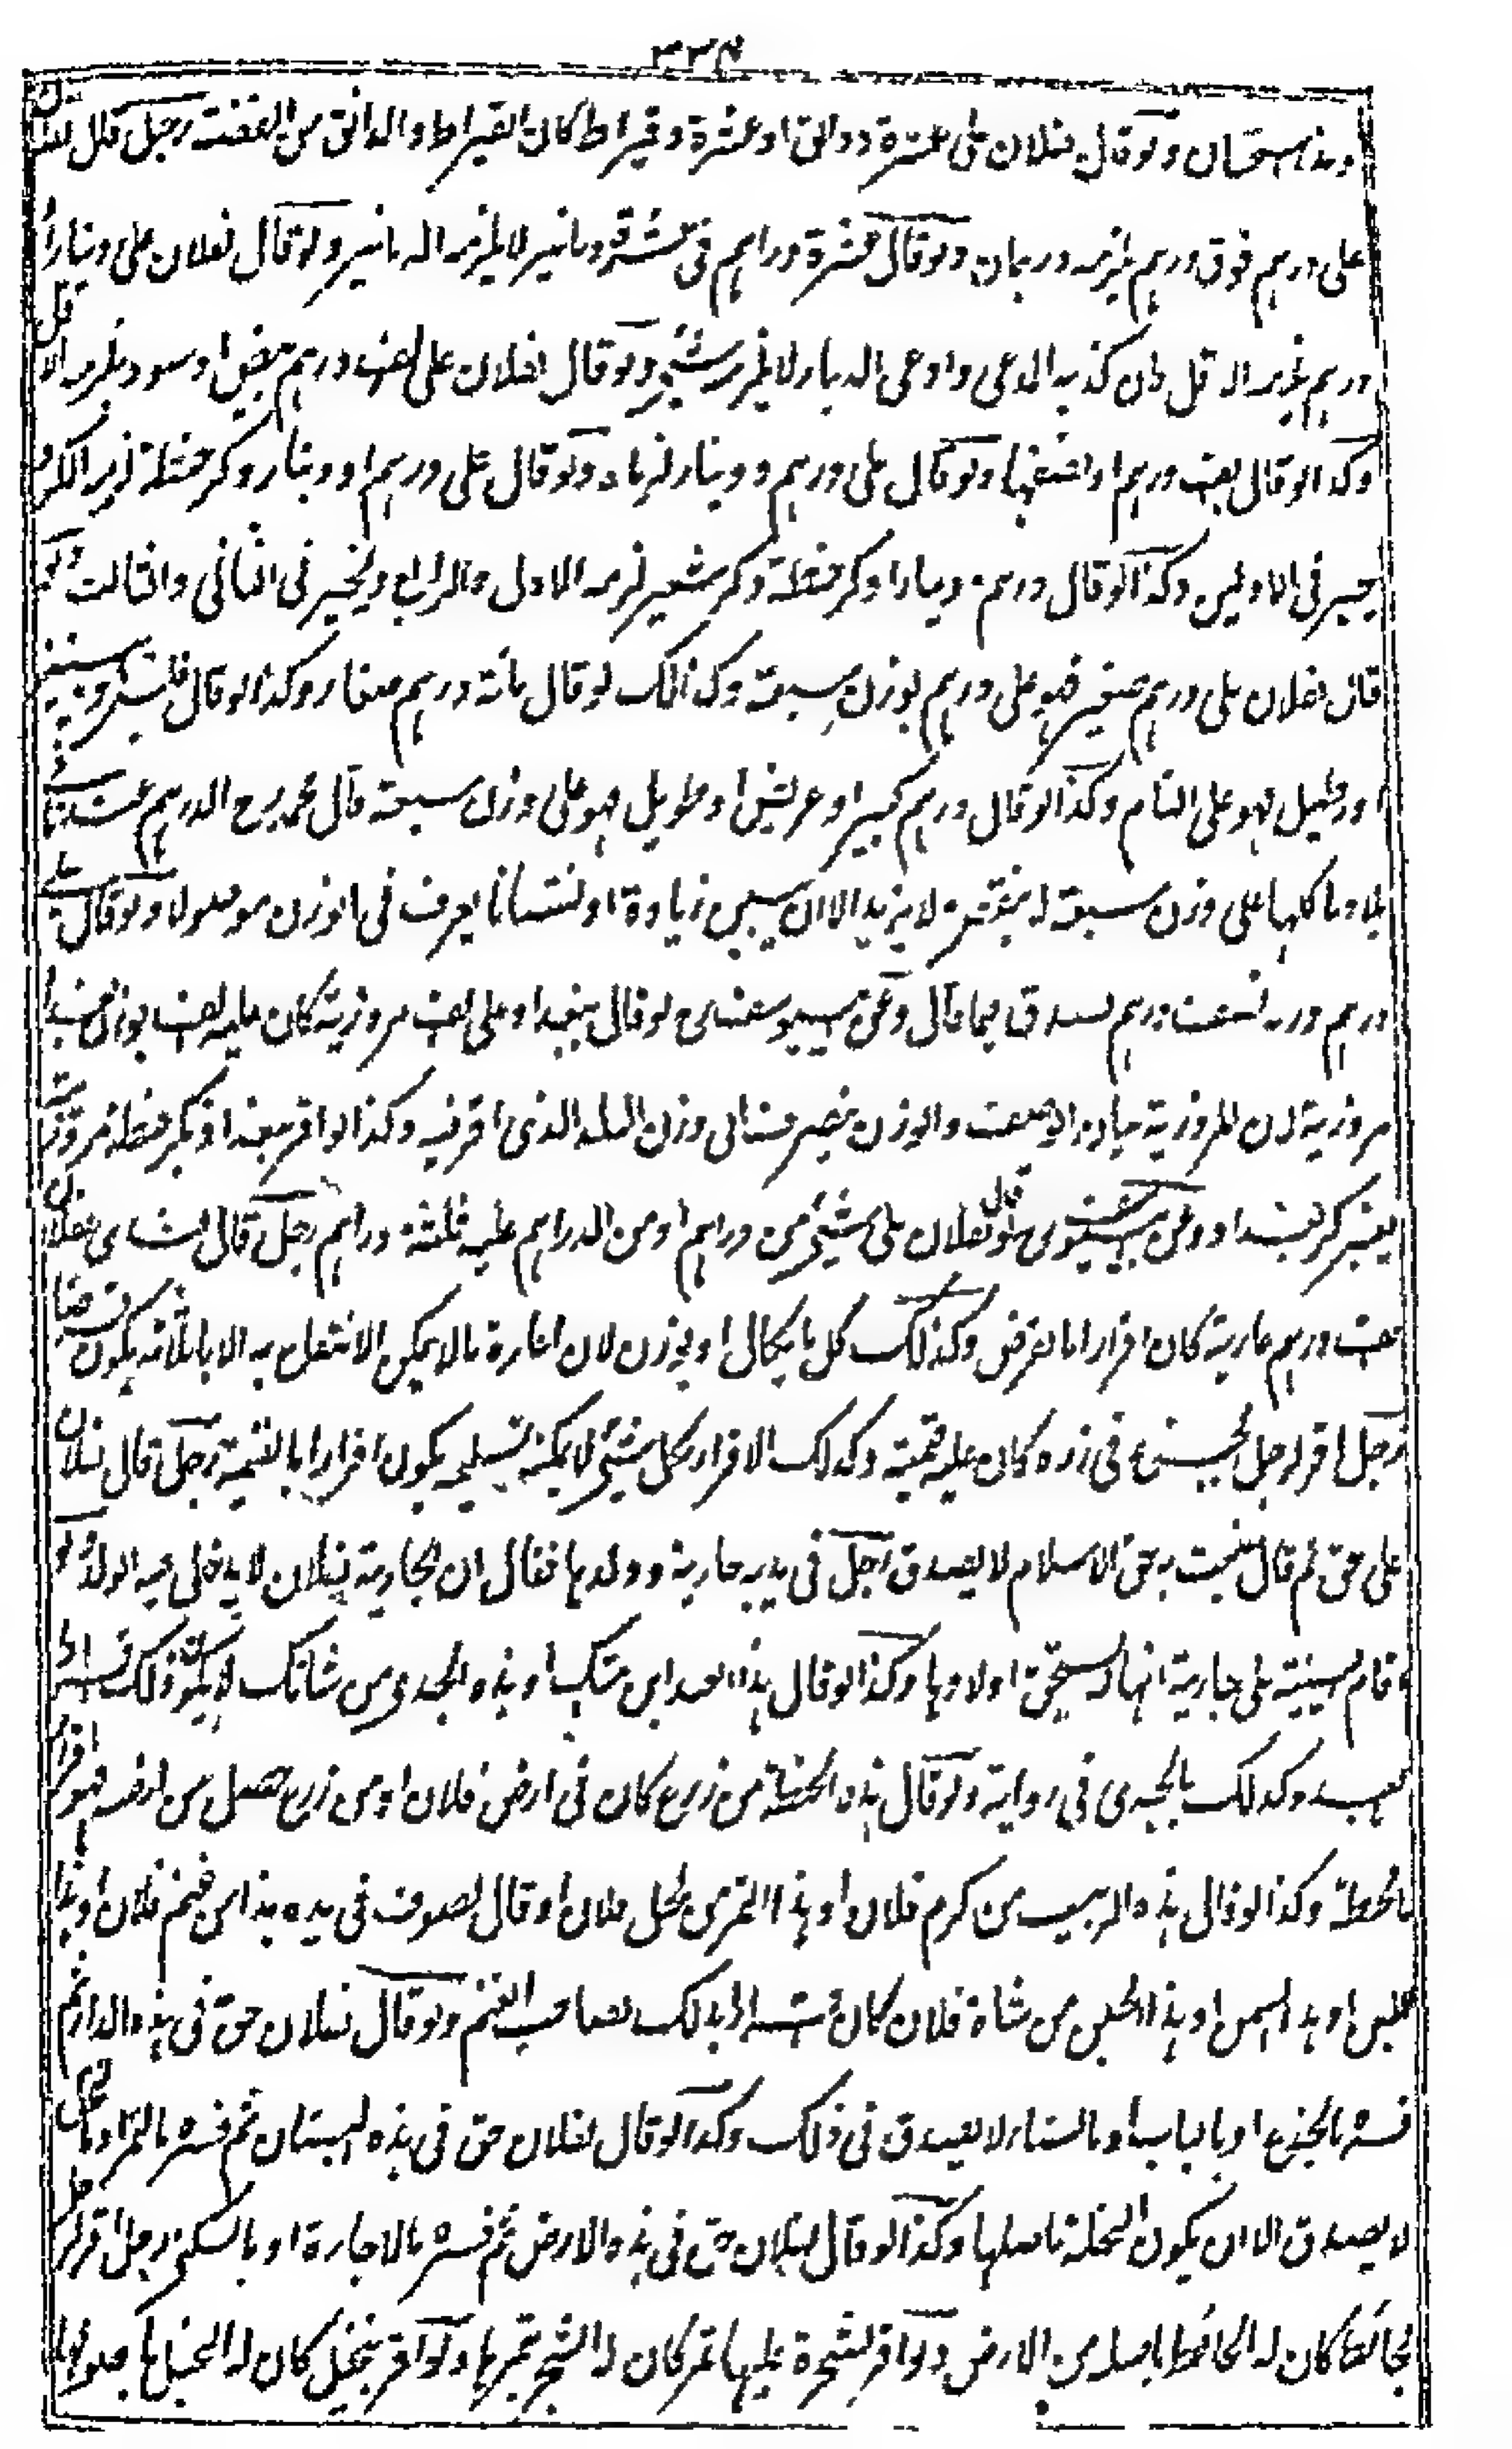 ٣٣٤
وهذا استحسان ولو قال لفلان علي عشرة دوانق او عشرة وقيراط كان القيراط والدانق من الفضة رجل قال لفلان
على درهم فوق درهم يلزمه درهمان ولو قال عشرة دراهم في عشرة دنانير لا يلزمه الدنانير ولو قال لفلان على دينار او
درهم يلزمه الاقل وان كذبه المدعى وادعى الدينار لا يلزمه شئ ولو قال لفلان على الف درهم بيض او سود يلزمه الاقل
وكذا لو قال الف درهم او نصفها ولو قال على درهم ودينار لزماه ولو قال على درهم او دينار وكر حنطة لزمه الكر و
يخير في الاولين وكذا لو قال درهم ودينار او كر حنطة وكر شعير لزمه الاول والرابع ويخير في الثاني والثالث ولو
قال لفلان على درهم صغير فهو على درهم بوزن سبعة وكذلك لو قال مائة درهم صغار وكذا لو قال
او رطيل فهو على التام وكذا لو قال درهم كبير او عريض او طويل فهو على وزن سبعة قال محمد رح الدرهم عندنا
بلادنا كلها على وزن سبعة لا ينقص ولا يزيد الا ان يبين زيادة او نقصانا يعرف في الوزن موصولا ولو قال علي
درهم وزنه نصف درهم يصدق فيما قال وعن ابي يوسف لو قال ببغداد على الف مروزية كان عليه الف بوزن بغداد
مروزية لان المروزية بيان الصفة والوزن ينصرف الى وزن البلد الذي اقر فيه وكذا لو اقر ببغداد بكر حنطة مروزية
يعتبر كر بغداد وعن ابي يوسف لو قال لفلان على شئ من دراهم او من الدراهم عليه ثلثة دراهم رجل قال لفلان
الف درهم عارية كان اقرارا بالقرض وكذلك كل ما يكال او يوزن لان اعارة ما لا يمكن الانتفاع به الا باتلافه يكون قرضا
رجل اقر لرجل بخشبة في داره كان عليه قيمته وكذلك الاقرار بكل شئ لا يمكنه تسليمه يكون اقرارا بالقيمة رجل قال لفلان
على حق ثم قال عنيت به حق الاسلام لا يصدق رجل في يديه جارية وولدها فقال ان الجارية لفلان لا يدخل فيه الولد ولو
اقام البينة على جارية انها له يستحق اولادها وكذا لو قال هذا العبد ابن امتك او هذه الجدي من شاتك لا يكون ذلك اقرارا
بالعبد وكذلك بالجدي في رواية ولو قال هذه الحنطة من زرع كان في ارض فلان او من زرع حصل من ارضه فهو اقرار
بالحنطة وكذا لو قال هذه الزبيب من كرم فلان او هذا التمر من نخل فلان او قال لصوف في يده هذا من غنم فلان او هذا
اللبن او هذا السمن او هذا الجبن من شاة فلان كان اقرارا بذلك لصاحب الغنم ولو قال لفلان حق في هذه الدار ثم
فسره بالجذع او بالباب او بالبناء لا يصدق في ذلك وكذا لو قال لفلان حق في هذه البستان ثم فسره بالثمر او بالنخل
لا يصدق الا ان يكون النخلة باصلها وكذا لو قال لفلان حق في هذه الارض ثم فسره بالاجارة او بالسكنى رجل اقر لرجل
بحائط كان له الحائط باصله من الارض ولو اقر بشجرة عليها ثمر كان له الشجر بثمرها ولو اقر بنخيل كان له النخيل باصولها